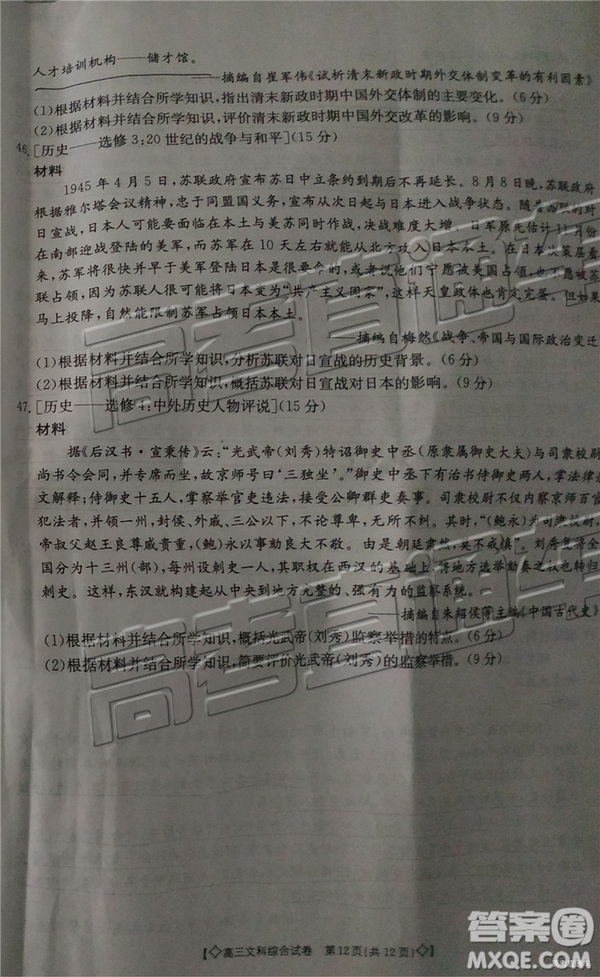 人才培训机构——储才馆。
——摘编自崔军伟《试析清末新政时期外交体制变革的有利因素》
(1)根据材料并结合所学知识,指出清末新政时期中国外交体制的主要变化。(6分)
(2)根据材料并结合所学知识,评价清末新政时期中国外交改革的影响。(9分)
46.[历史——选修3:20世纪的战争与和平](15分)
材料
1945年4月5日,苏联政府宣布苏日中立条约到期后不再延长。8月8日晚,
根据雅尔塔会议精神,忠于同盟国义务,宣布从次日起与日本进入战争状态。随着苏联的对
日宣战,日本人可能要面临在本土与美苏同时作战,决战难度大增。日军原先估计11月份
在南部迎战登陆的美军,而苏军在10天左右就能从北方攻入日本本土。在日本决策层看
来,苏军将很快并早于美军登陆日本是很要命的,或者说他们宁愿被美国占领,也不愿被苏
联占领,因为苏联人很可能将日本变为“共产主义国家”,这样天皇政体也肯定完蛋。但如果
马上投降,自然能限制苏军占领日本本土。
——摘编自梅然《战争、帝国与国际政治变迁
(1)根据材料并结合所学知识,分析苏联对日宣战的历史背景。(6分)
(2)根据材料并结合所学知识,说明苏联对日宣战对日本的影响。(9分)
47.[历史——选修4:中外历史人物评说](15分)
材料
据《后汉书·宣秉传》云:“光武帝(刘秀)特诏御史中丞(原隶属御史大夫)与司隶校尉
尚书令会同,并专席而坐,故京师号曰‘三独坐’。”御史中丞下有治书侍御史两人,掌法律
文解释;侍御史十五人,掌察举官吏违法,接受公卿群吏奏事。司隶校尉不仅内察京师百官
犯法者,并领一州,封侯、外戚、三公以下,不论尊卑,无所不纠。其时,“(鲍永)为司隶校尉,
帝叔父赵王良尊戚贵重,(鲍)永以事劾良大不敬。由是朝廷肃然,莫不戒慎”。刘秀复将全
国分为十三州(部),每州设刺史一人,其职权在西汉的基础上,将地方选举劾奏之权也转归
刺史。这样,东汉就构建起从中央到地方完整的、强有力的监察系统。
——摘编自朱绍侯等主编《中国古代史》
(1)根据材料并结合所学知识,概括光武帝(刘秀)监察举措的特点。(6分)
(2)根据材料并结合所学知识,简要评价光武帝(刘秀)的监察举措。(9分)
高考直通车
高考直通车
【◇高三文科综合试卷 第12页(共12页)◇】
答案圈
MXQE.COM